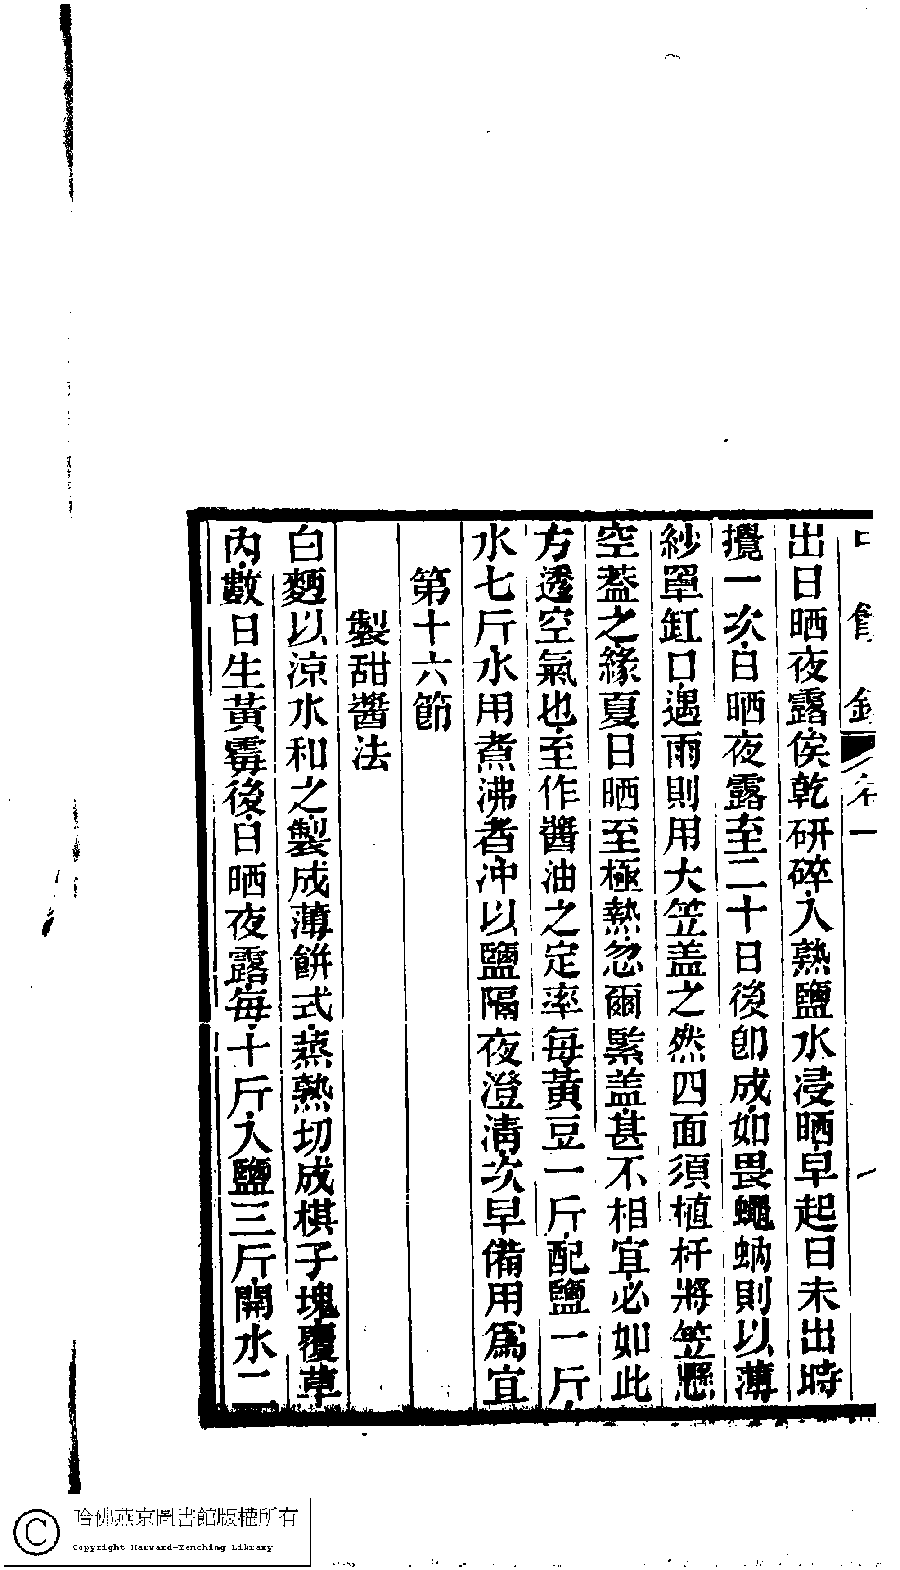 中饋錄 卷一
出日晒夜露俟乾研碎入熟鹽水浸晒早起日未出時
攪一次日晒夜露至二十日後卽成如畏蠅蚋則以薄
紗罩缸口遇雨則用大笠盖之然四面須植杆將笠懸
空葢之緣夏日晒至極熱忽爾緊盖甚不相宜必如此
方透空氣也至作醬油之定率每黃豆一斤配鹽一斤
水七斤水用煮沸者冲以鹽隔夜澄清次早備用爲宜
第十六節
製甜醬法
白麵以涼水和之製成薄餅式蒸熟切成棋子塊覆草
內數日生黃霉後日晒夜露每十斤入鹽三斤開水二
哈佛燕京圖書館版權所有
Copyright Harvard-Yenching Library